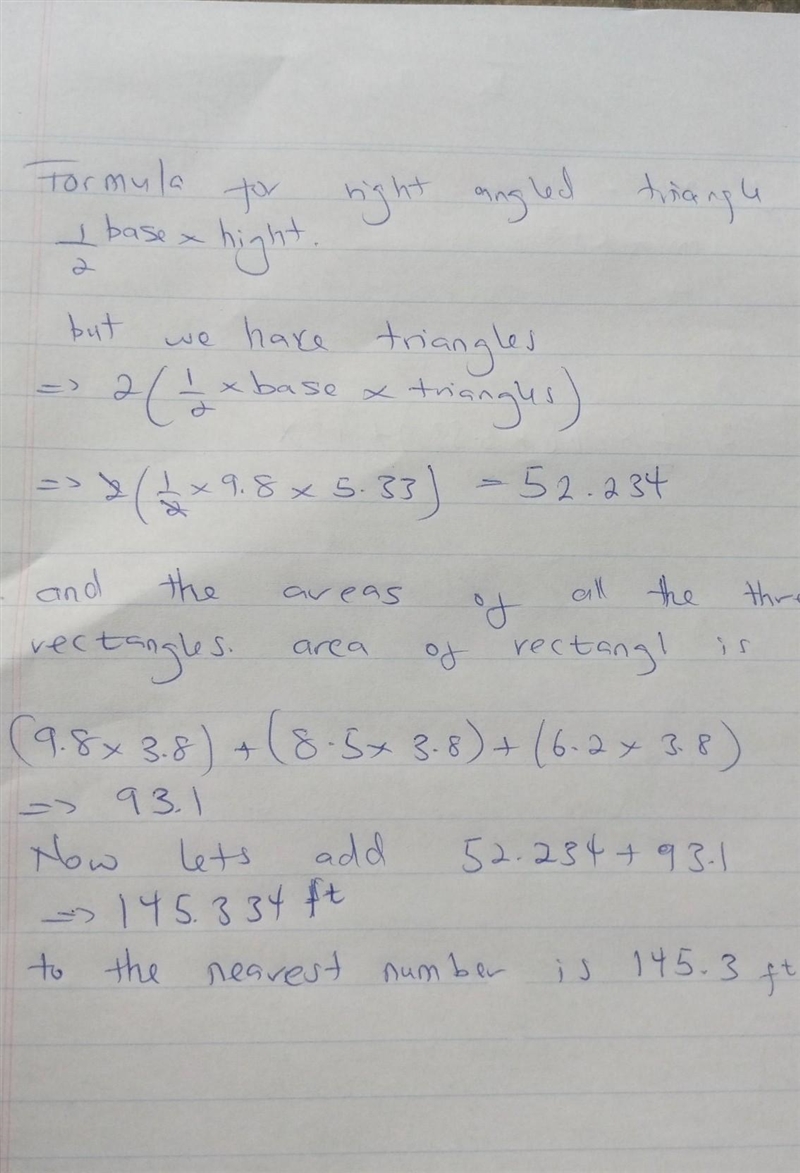 Formula for right angled triangle
1/2 base × hight.
but we have triangles
=> 2(1/2 × base × triangles)
=> 2(1/2 × 9.8 × 5.33) = 52.234
and the areas of all the thre
rectangles. area of rectangl is
(9.8 × 3.8) + (8.5 × 3.8) + (6.2 × 3.8)
=> 93.1
Now lets add 52.234 + 93.1
=> 145.334 ft
to the nearest number is 145.3 ft